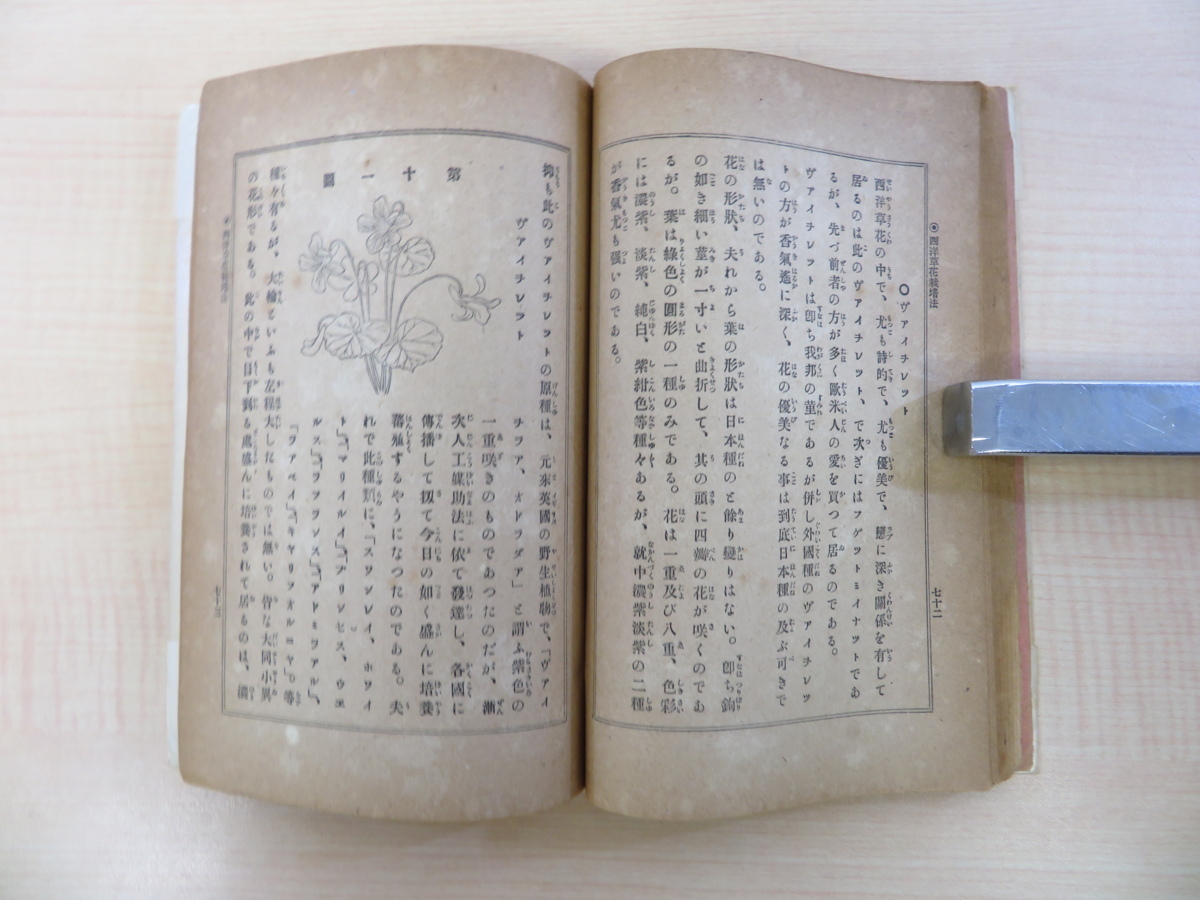 ◉西洋草花栽培法
七十二
〇ヴァイヲレット
西洋草花の中で、尤も詩的で、尤も優美で、戀に深き關係を有して
居るのは此のヴァイヲレット、で次ぎにはフヲゲットミイナットであ
るが、先づ前者の方が多く歐米人の愛を買つて居るのである。
ヴァイヲレットは卽ち我邦の菫であるが併し外國種のヴァイヲレッ
トの方が香氣遙に深く、花の優美なる事は到底日本種の及ぶ可きで
は無いのである。
花の形狀、夫れから葉の形狀は日本種のと餘り變りはない。卽ち鉤
の如き細い莖が一寸いと曲折して、其の頭に四瓣の花が咲くのであ
るが。葉は綠色の圓形の一種のみである。花は一重及び八重、色彩
には濃紫、淡紫、純白、紫紺色等種々あるが、就中濃紫淡紫の二種
が香氣尤も强いのである。
抑も此のヴァイヲレットの原種は、元來英國の野生植物で、「ヴァイ
ヲラ、オドラダア」と謂ふ紫色の
一重咲きのものであつたのだが、漸
次人工媒助法に依て發達し、各國に
傳播して扨て今日の如く盛んに培養
蕃殖するやうになつたのである。夫
れで此種類に、「スワンレイ、ホワイ
ト」「マリイルイ」「プリンセス、ウエ
ルス」「アドミラル」、
等
種々有るが、大輪といふも左程大したものでは無い。皆な大同小異
の花形である。此の中で目下到る處盛んに培養されて居るものは、濃
ヴァイヲレット
第十一圖
七十三